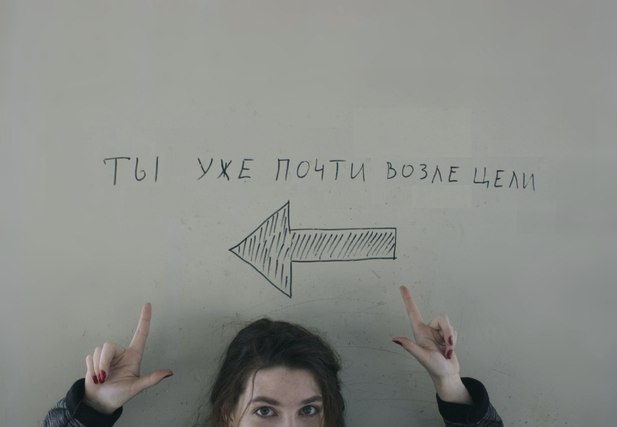 ТЫ УЖЕ ПОЧТИ ВОЗЛЕ ЦЕЛИ